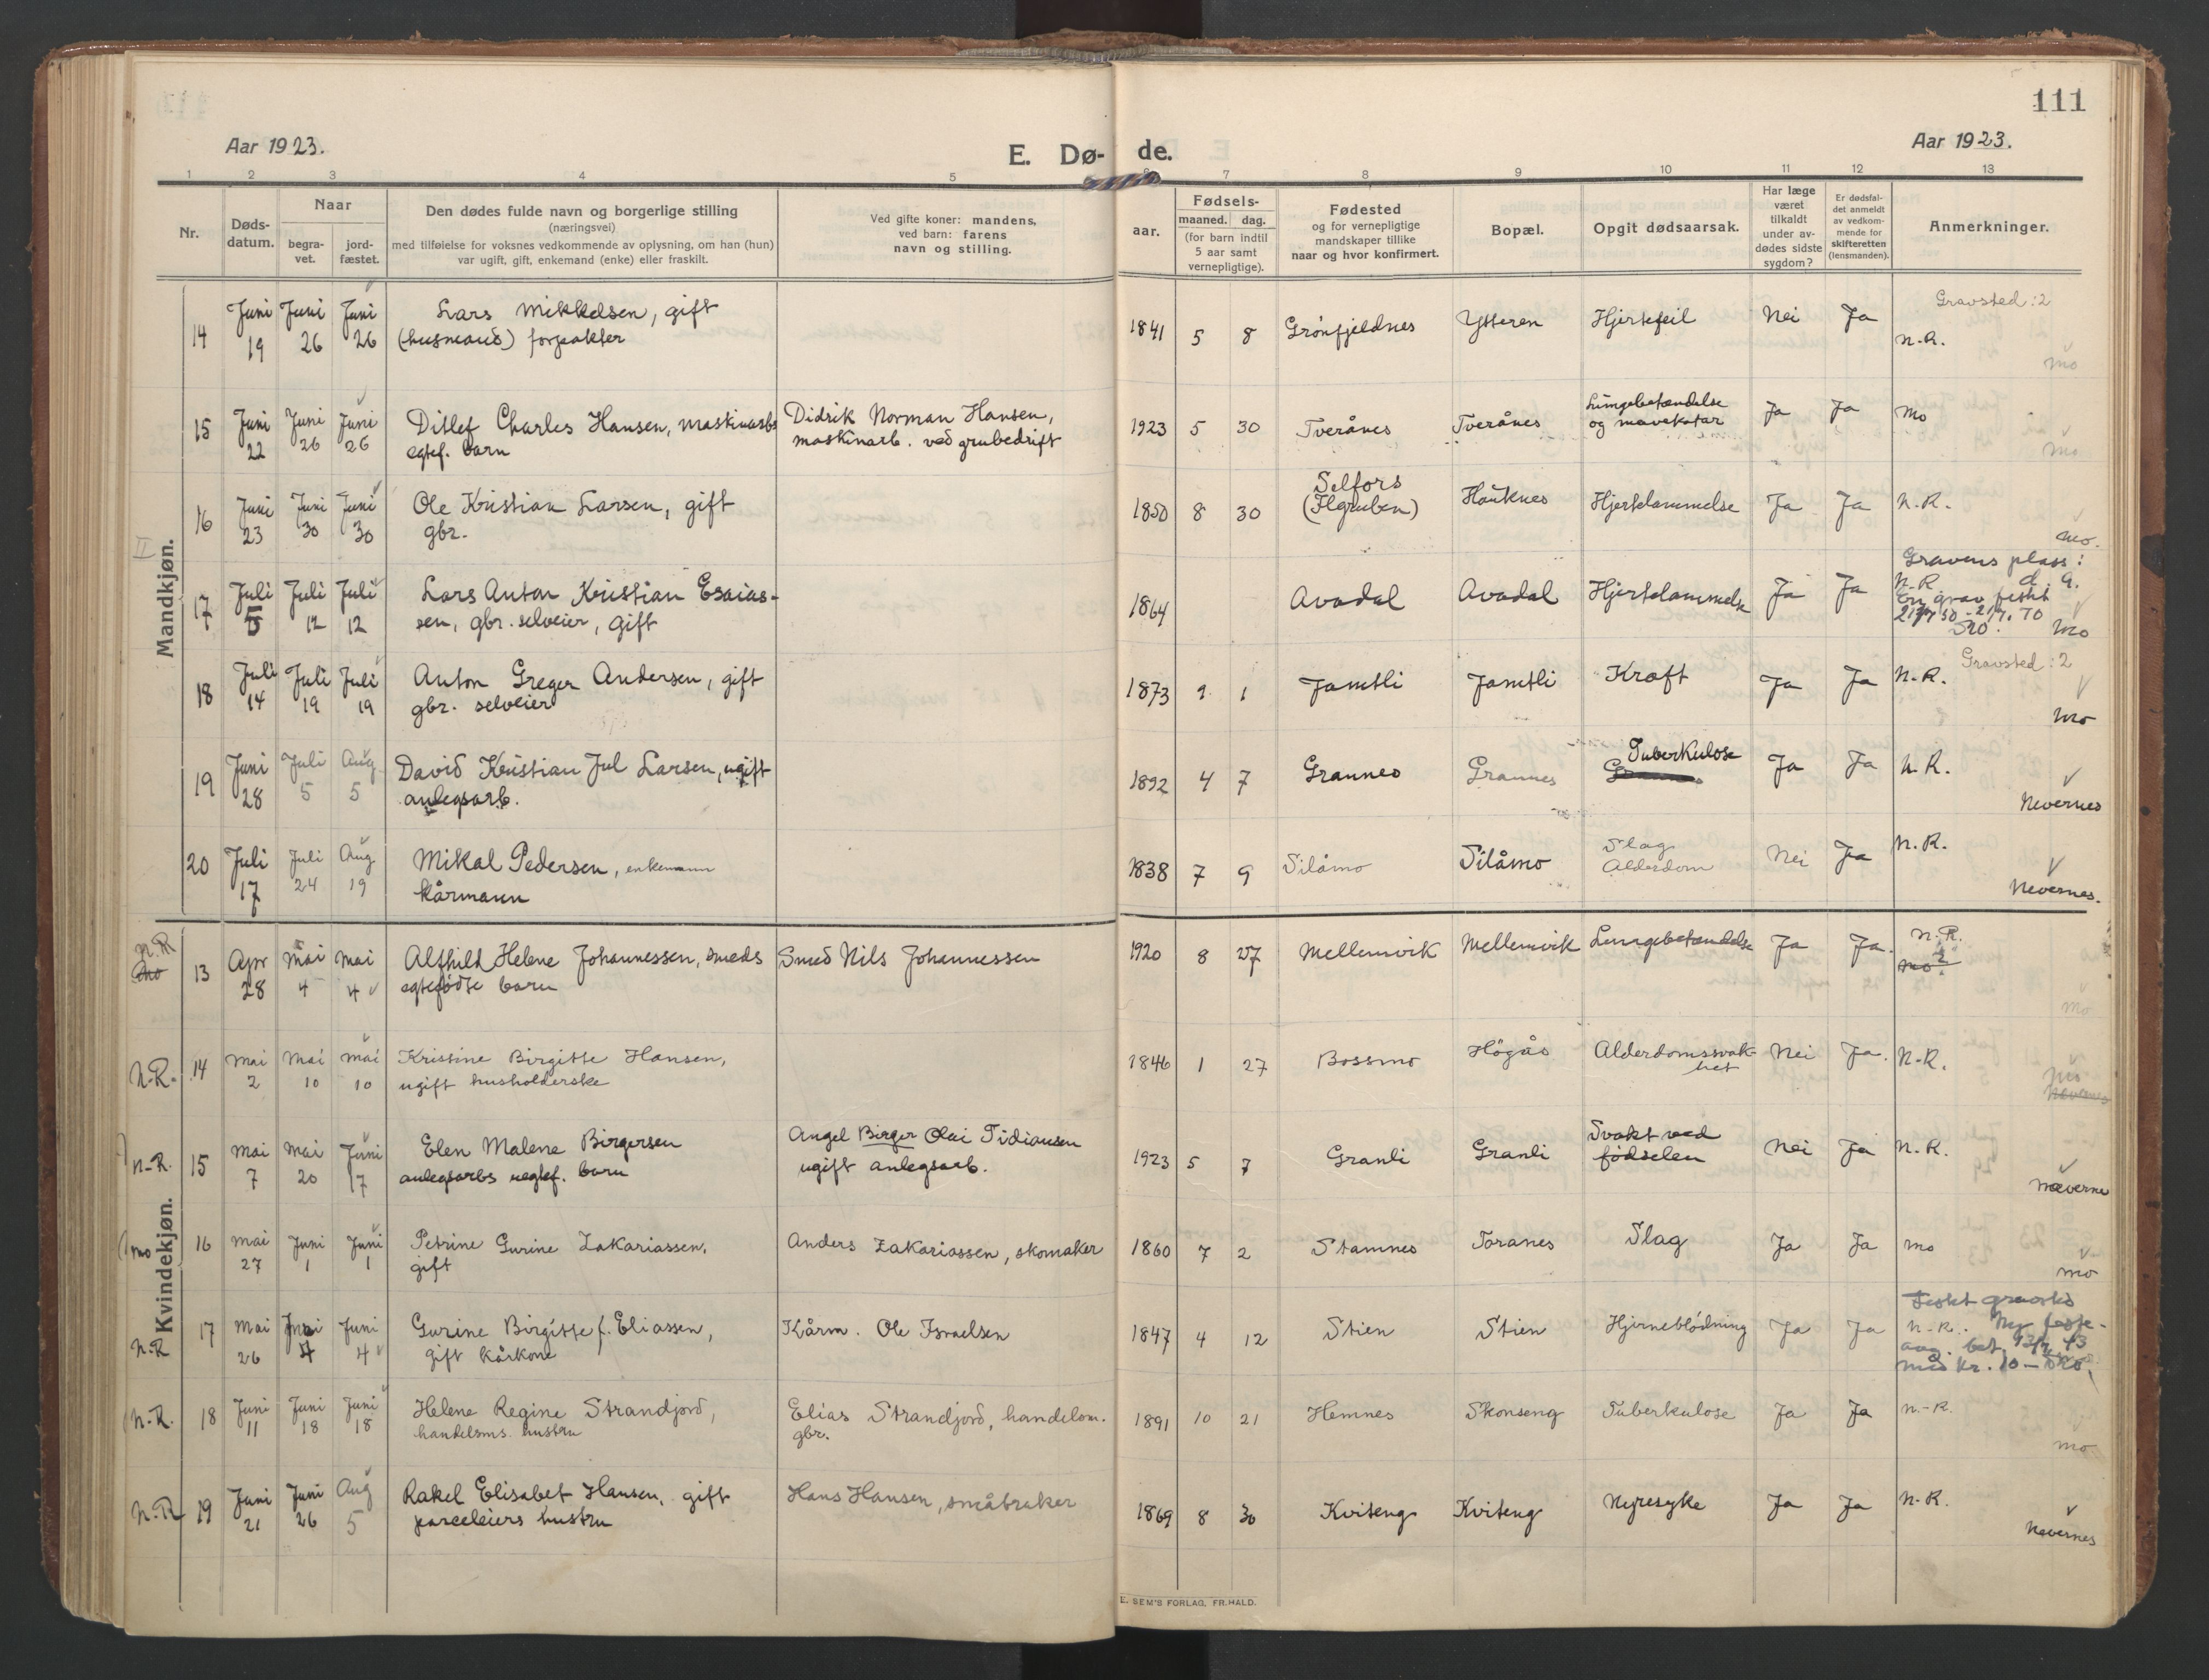 111
Aar 1923.
E. Dø- de.
Aar 1923.
1 2 3 4 5 7 8 9 10 11 12 13
Nr.
Døds-
datum.
Naar
begra-
vet.
jord-
fæstet.
Den dødes fulde navn og borgerlige stilling
(næringsvei)
med tilføielse for voksnes vedkommende av oplysning, om han (hun)
var ugift, gift, enkemand (enke) eller fraskilt.
Ved gifte koner: mandens,
ved barn: farens
navn og stilling.
Fødsels-
aar.
maaned. dag.
(for barn indtil
5 aar samt
vernepligtige).
Fødested
og for vernepligtige
mandskaper tillike
naar og hvor konfirmert.
Bopæl.
Opgit dødsaarsak.
Har læge
været
tilkaldt
under av-
dødes sidste
sygdom?
Er dødsfal-
det anmeldt
av vedkom-
mende for
skifteretten
(lensmanden).
Anmerkninger.
Mandkjøn.
14 Juni Juni Juni Lars Mikkelsen, gift 1841 5 8 Grönfjeldnes Ytteren Hjertefeil Nei Ja Gravsted: 2
19 26 26 (husmand) forpakter N.-R.
Mo
15 Juni Juni Juni Ditlef Charles Hansen, maskinarbs Didrik Norman Hansen, 1923 5 30 Tverånes Tverånes Lungebetændelse Ja Ja Mo
22 26 26 egtef. barn maskinarb. ved grubedrift og mavekatar
Mo
16 Juni Juni Juni Ole Kristian Larsen, gift 1850 8 30 Selfors Hauknes Hjertelammelse Ja Ja N.R.
23 30 30 gbr. (Ilgruben)
Mo.
17 Juli Juli Juli Lars Anton Kristian Esaias- 1864 Avadal Avadal Hjertelammelse Ja Ja Gravens plass:
5 12 12 sen, gbr. selveier, gift N.R
En grav festet
Mo
18 Juli Juli Juli Anton Greger Andersen, gift 1873 1 Jamtli Jamtli Kræft Ja Ja N.R. Gravsted: 2
14 19 19 gbr. selveier
Mo
19 Juni Juli Aug David Kristian Jul Larsen, ugift 1892 4 7 Grannes Grannes Tuberkulose Ja Ja N.R.
28 5 5 anlegsarb.
Nevernes
20 Juli Juli Aug Mikal Pedersen, enkemann 1838 7 9 Silåmo Silåmo Slag Nei Ja N.R.
17 24 19 kårmann Alderdom
Nevernes.
Kvindekjøn.
N.R. Mo 13 Apr Mai Mai Alfhild Helene Johannessen, smeds Smed Nils Johannessen 1920 8 27 Mellemvik Mellemvik Lungebetændelse Ja Ja. N.R.
28 4 4 egtefødte barn Mo
Mo
N.R. 14 Mai Mai Mai Kristine Birgitte Hansen, 1846 1 27 Bossmo Högås Alderdomssvak- Nei Ja. N.R.
2 10 10 ugift husholderske het
Mo
Nevernes
N.R. 15 Mai Mai Juni Elen Malene Birgersen Angel Birger Olai Tidiansen 1923 5 7 Granli Granli Svakt ved Nei Ja N.R.
7 20 17 anlegsarbs uegtef. barn ugift anlegsarb. fødselen
Mo 16 Mai Juni Juni Petrine Gurine Zakariassen, Anders Zakariassen, skomaker 1860 7 2 Stamnes Toranes Slag Ja Ja Mo
27 1 1 gift
Mo
N.R 17 Mai Juni Juni Gurine Birgitte f. Eliassen, Kårm. Ole Israelsen 1847 4 12 Stien Stien Hjerneblödning Ja Ja N.R. Ny feste-
26 4 4 gift kårkone
med kr. 10
N.R. 18 Juni Juni Juni Helene Regine Strandjord, Elias Strandjord, handelsm. 1891 10 21 Hemnes Skonseng Tuberkulose Ja Ja N.R.
11 18 18 handelsms. hustru gbr.
Mo
N.R 19 Juni Juni Aug Rakel Elisabet Hansen, gift Hans Hansen, småbruker 1869 8 30 Kviteng Kviteng Nyresyke Ja Ja N.R.
21 26 5 parceleiers hustru
Nevernes
E. SEM'S FORLAG, FR.HALD.